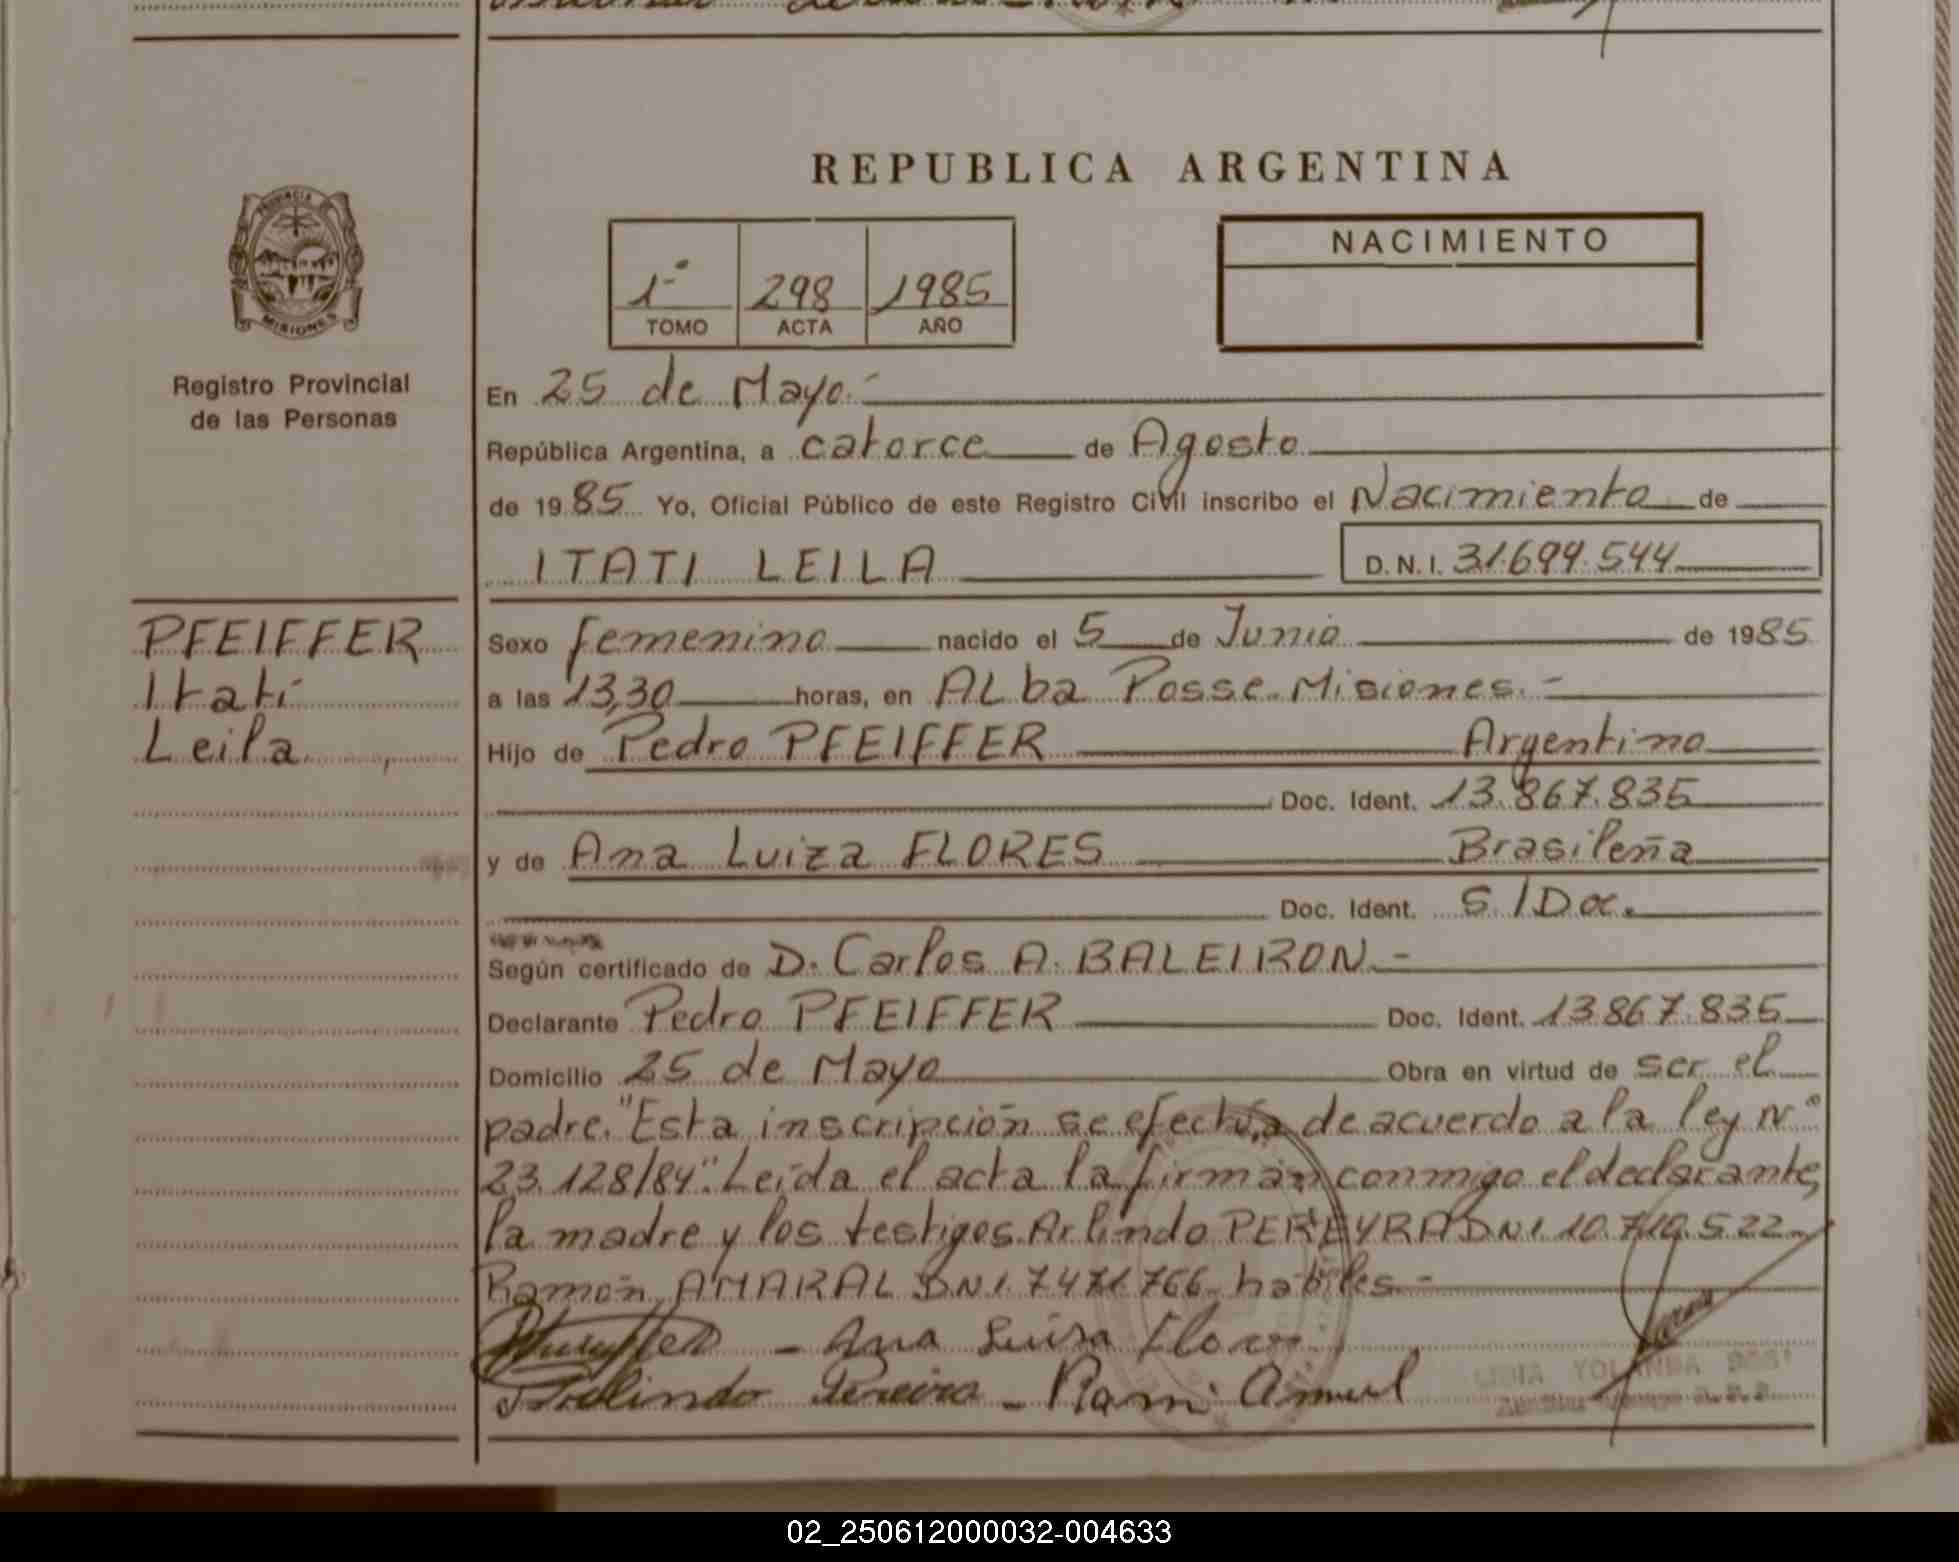 REPUBLICA ARGENTINA
PROVINCIA DE
MISIONES
Registro Provincial
de las Personas
1º 298 1985
TOMO ACTA AÑO
NACIMIENTO
En 25 de Mayo.-
República Argentina, a catorce de Agosto
de 1985 Yo, Oficial Público de este Registro Civil inscribo el Nacimiento de
ITATI LEILA D.N.I. 31.699.544
PFEIFFER
Itatí
Leila
Sexo femenino nacido el 5 de Junio de 1985
a las 13,30 horas, en ALba Posse-Misiones.-
Hijo de Pedro PFEIFFER Argentino
Doc. Ident. 13.867.835
y de Ana Luiza FLORES Brasileña
Doc. Ident. S/Doc.
Según certificado de D. Carlos A. BALEIRON.-
Declarante Pedro PFEIFFER Doc. Ident. 13.867.835
Domicilio 25 de Mayo Obra en virtud de ser el
padre. "Esta inscripción se efectúa de acuerdo a la ley Nº
23.128/84". Leída el acta la firman conmigo el declarante,
la madre y los testigos Arlindo PEREYRA DNI 10.710.522-
Ramón AMARAL DNI 7471.766- habiles-
- Ana Luisa Flores
Arlindo Pereira - Ramon Amaral
LIDIA YOLANDA
02_250612000032-004633